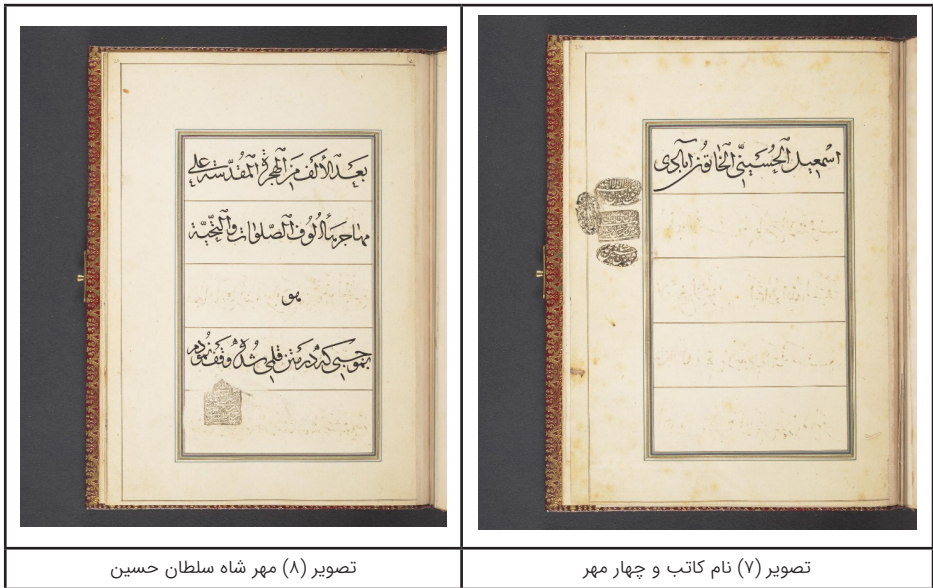 اسْمعيل الحُسَيْنِيّ الخاتون آبادي
تصویر (۷) نام کاتب و چهار مهر
بَعد الألف مِنَ الهِجرة المُقَدّسة علی
مهاجرها أُلُوف الصّلوات والتّحيّة
هو
بموجبی که در متن قلمی شده وقف نمودم
تصویر (۸) مهر شاه سلطان حسین